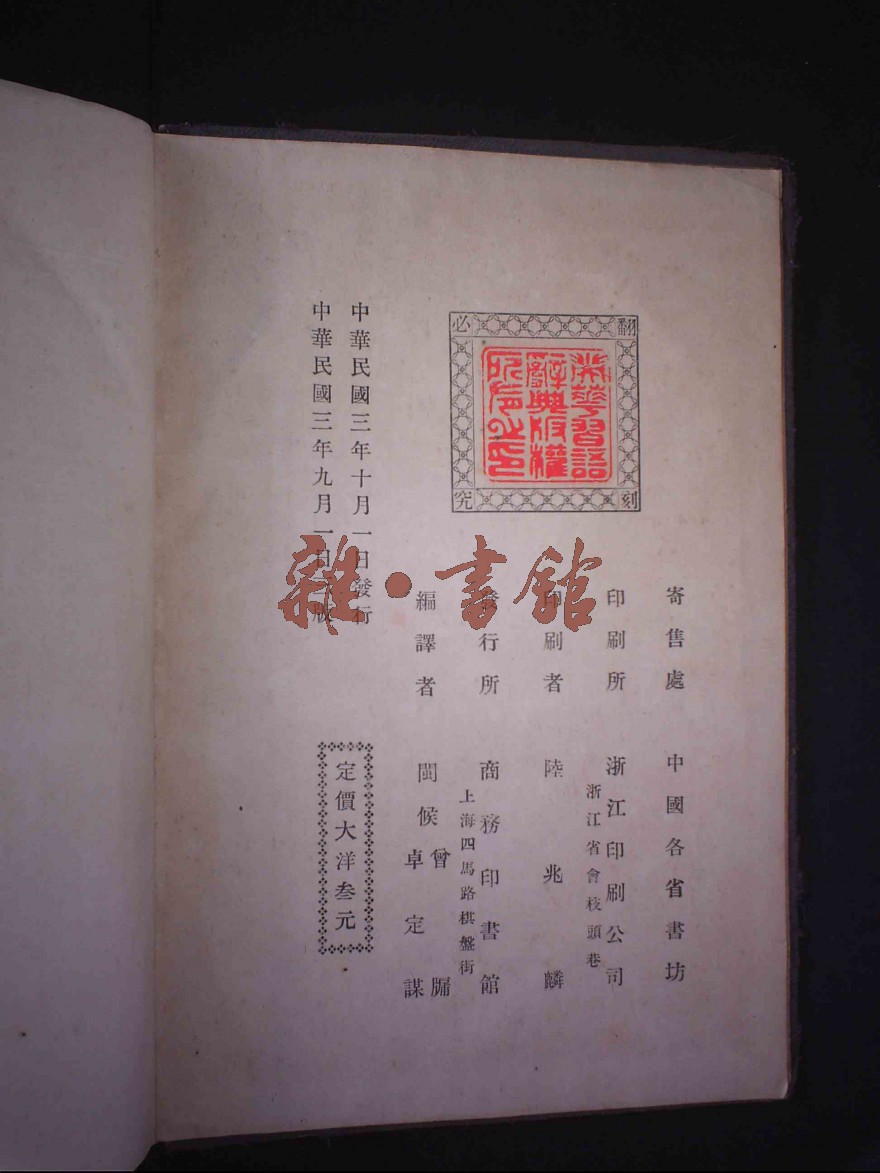 翻刻必究
華習語
辭典版權
所有之印
寄售處 中國各省書坊
印刷所 浙江印刷公司
浙江省會枝頭巷
印刷者 陸兆麟
發行所 商務印書館
上海四馬路棋盤街
編譯者 閩候 曾牖
卓定謀
中華民國三年十月一日發行
中華民國三年九月一日版
定價大洋叁元
雜·書館